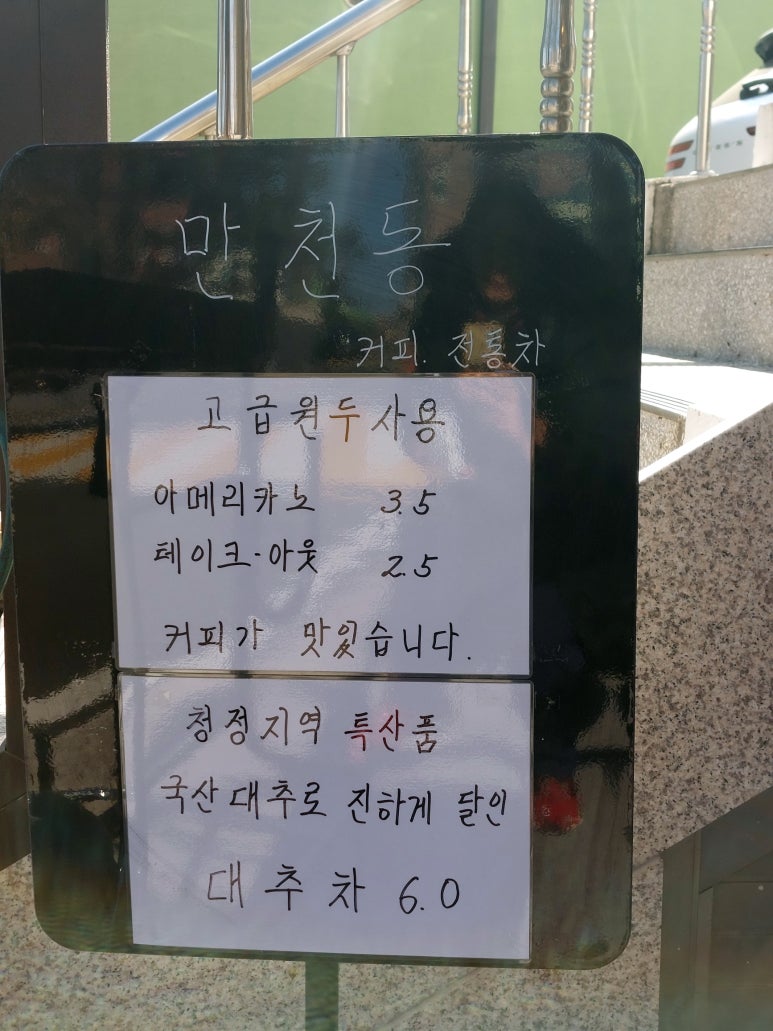 만천동
커피. 전통차
고급원두사용
아메리카노 3.5
테이크·아웃 2.5
커피가 맛있습니다.
청정지역 특산품
국산대추로 진하게 달인
대추차 6.0